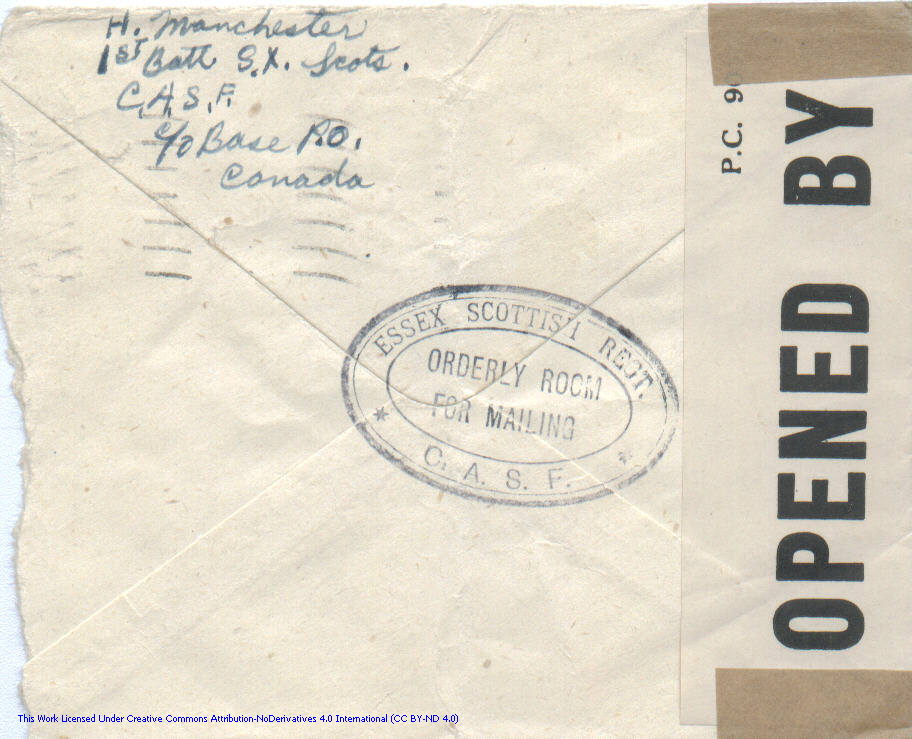 H. Manchester
1ST Batt S.X. Scots.
C.A.S.F.
c/o Base P.O.
Canada
P.C. 9
OPENED BY
ESSEX SCOTTISH REGT.
ORDERLY ROOM
FOR MAILING
* C. A. S. F. *
This Work Licensed Under Creative Commons Attribution-NoDerivatives 4.0 International (CC BY-ND 4.0)